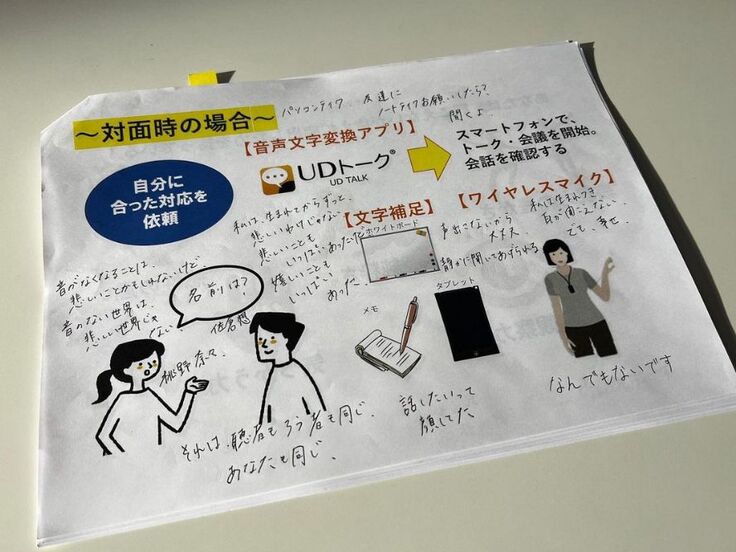 パソコンテイク 友達に
ノートテイクお願いしたら?
聞くよ
～対面時の場合～
【音声文字変換アプリ】
UDトーク®
UD TALK
スマートフォンで、
トーク・会議を開始。
会話を確認する
自分に
合った対応を
依頼
【文字補足】
ホワイトボード
メモ
タブレット
【ワイヤレスマイク】
私は、生まれてからずっと、
悲しいわけじゃない
悲しいことも
いっぱいあったけど
嬉しいことも
いっぱい
あった。
声出さないから
大丈夫
静かに聞いてあげられる
私は生まれつき
耳が聞こえない
でも、幸せ
音がなくなることは、
悲しいことかもしれないけど
音のない世界は、
悲しい世界じゃ
ない
名前は?
佐倉想
桃野奈々、
それは、聴者もろう者も同じ、
あなたも同じ、
話したいって
顔してた
なんでもないです